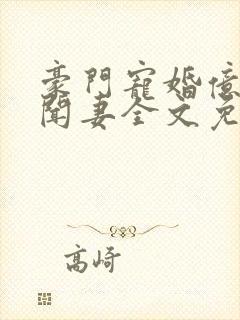 豪門寵婚億
聞妻全文免
高崎